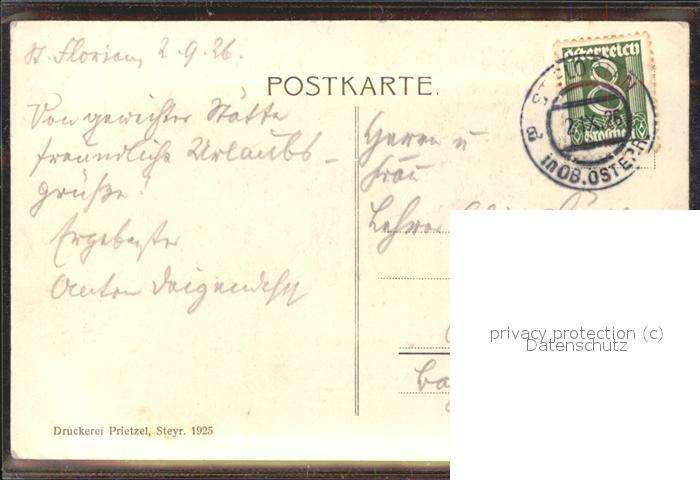 St. Florian, 2.9.26.
POSTKARTE.
Von geweihter Stätte
freundliche Urlaubs-
grüße!
Ergebenster
Anton
Herrn u
Frau
Lehrer
Österreich
8
Groschen
ST. FLORIAN
in OB. ÖSTERR.
a
privacy protection (c)
Datenschutz
Druckerei Prietzel, Steyr. 1925